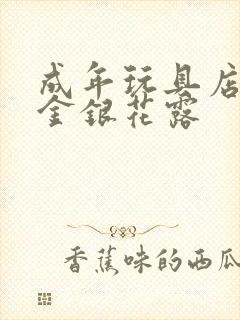 成年玩具店
金银花露
香蕉味的西瓜